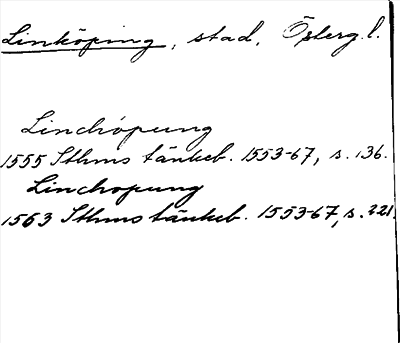 Linköping, stad, Österg.l.
Linchöpung
1555 Sthms tänkeb. 1553-67, s. 136.
Linchopung
1563 Sthms tänkeb. 1553-67, s. 221.